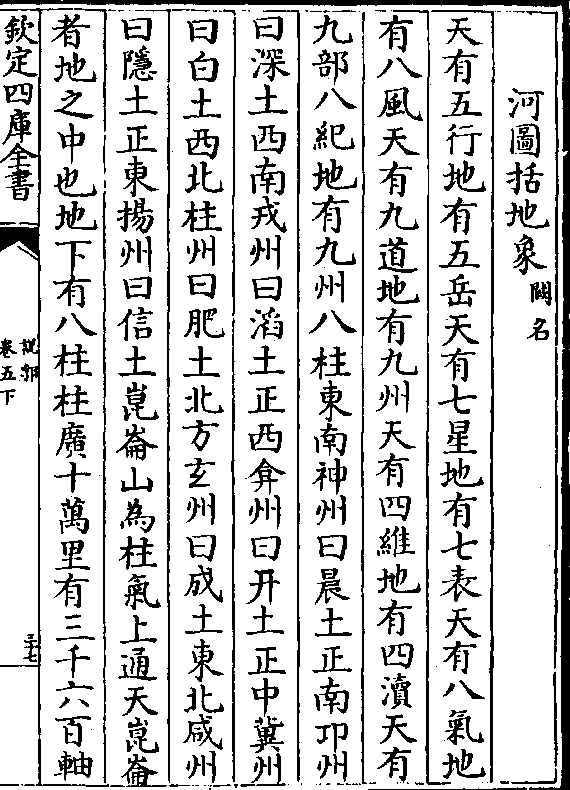 河圖括地象闕名
天有五行地有五岳天有七星地有七表天有八氣地
有八風天有九道地有九州天有四維地有四瀆天有
九部八紀地有九州八柱東南神州曰晨土正南卭州
曰深土西南戎州曰滔土正西弇州曰开土正中冀州
曰白土西北柱州曰肥土北方玄州曰成土東北咸州
曰隱土正東揚州曰信土崑崙山為柱氣上通天崑崙
者地之中也地下有八柱柱廣十萬里有三千六百軸
欽定四庫全書
說郛
卷五下
三十七